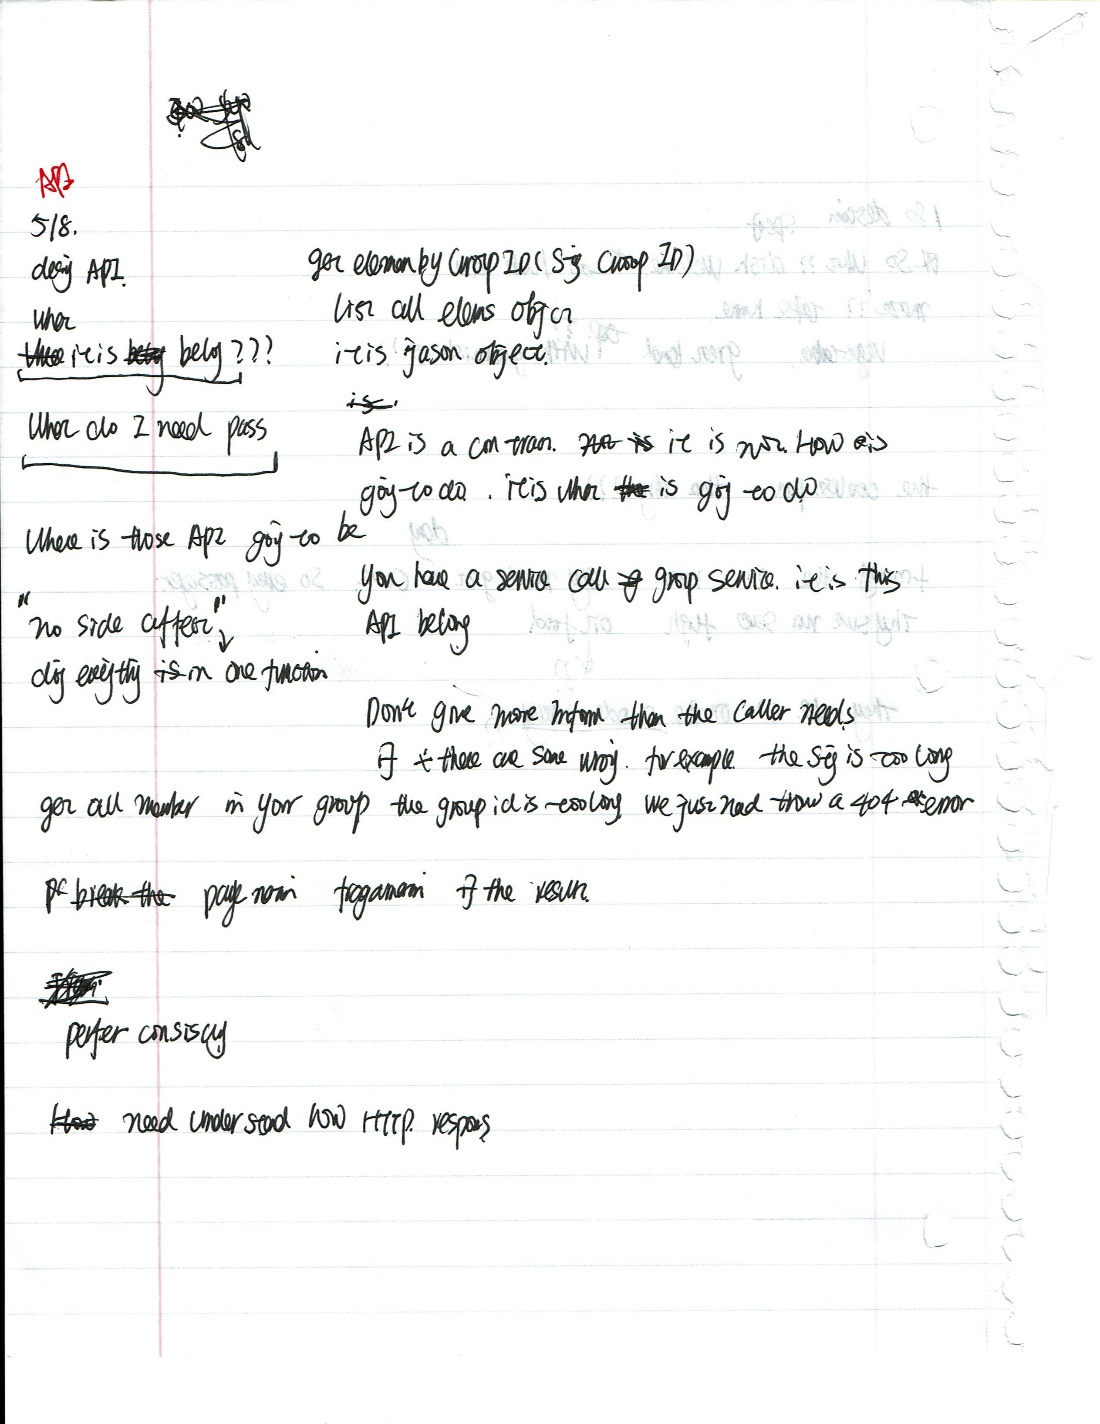 API
5/8.
desig API.
wher
it is belog ???
What do I need pass
Where is those API goig to be
"no side affect"
doig everythig in one function
get elemen by Group ID (Sig Group ID)
List all elems object
it is jason object.
API is a contran. it is not. How is
goig to do. it is what is goig to do
You have a service call group service. it is this
API belong
Don't give more inform than the caller needs
If there are some wrog. for example the Sig is too long
get all member in your group the group id is too long we just need throw a 404 error
page nation if the result.
perfer consiscy
need understad how HTTP. respons